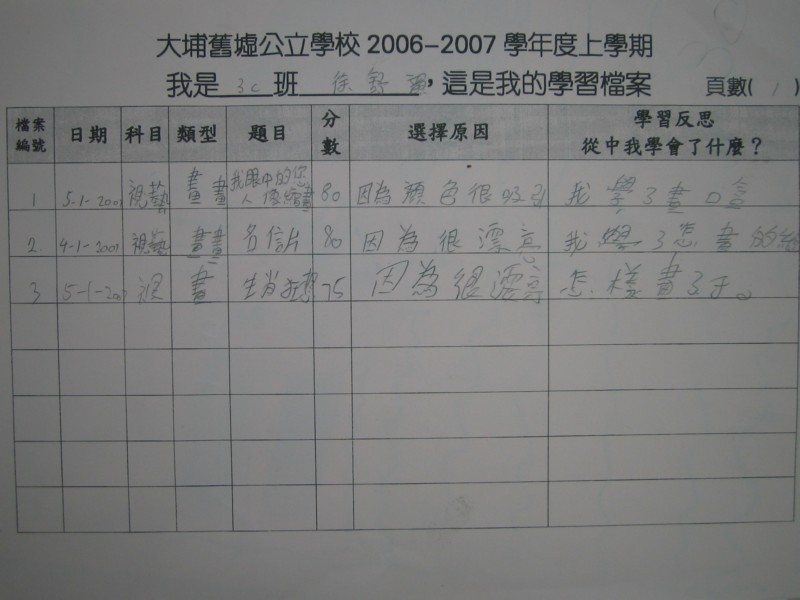 大埔舊墟公立學校 2006-2007 學年度上學期
我是 3C 班 徐舒, 這是我的學習檔案 頁數( 1 )
檔案編號 日期 科目 類型 題目 分數 選擇原因 學習反思 從中我學會了什麼?
1 5-1-2007 視藝 畫畫 我眼中的 人像繪畫 80 因為顏色很吸引 我學了畫口
2 4-1-2007 視藝 畫畫 名信片 80 因為很漂亮 我學了怎畫的
3 5-1-200 視 畫 生肖 75 因為很漂亮 怎樣畫